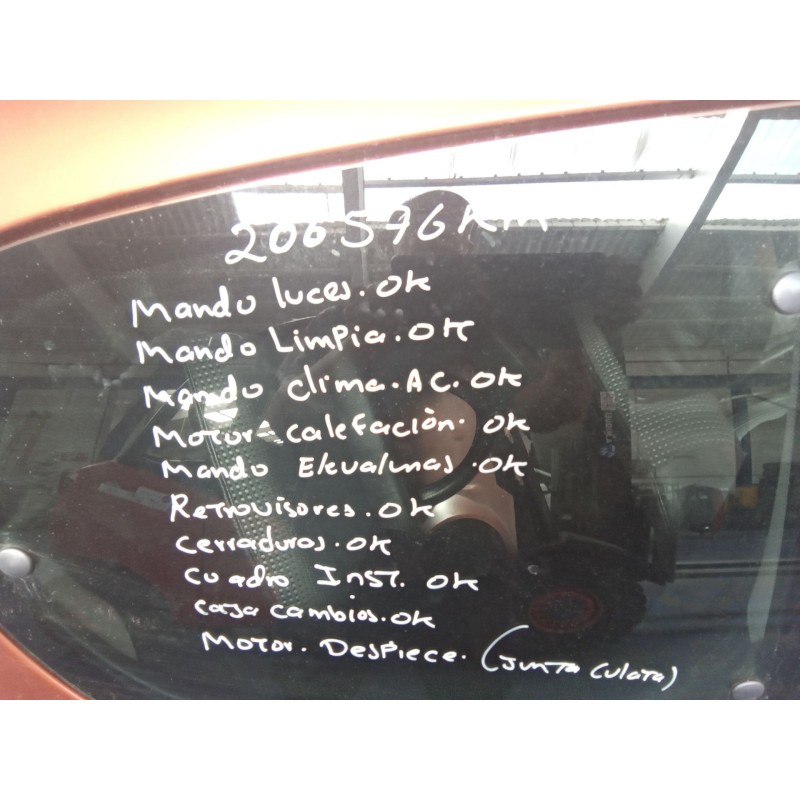 206576 KM
Mando luces. OK
Mando Limpia. OK
Mando clima. AC. OK
Motor calefaciòn. OK
Mando Elevalunas. OK
Retrovisores. OK
Cerraduras. OK
Cuadro Inst. OK
Caja cambios. OK
Motor. Despiece. (Junta Culata)